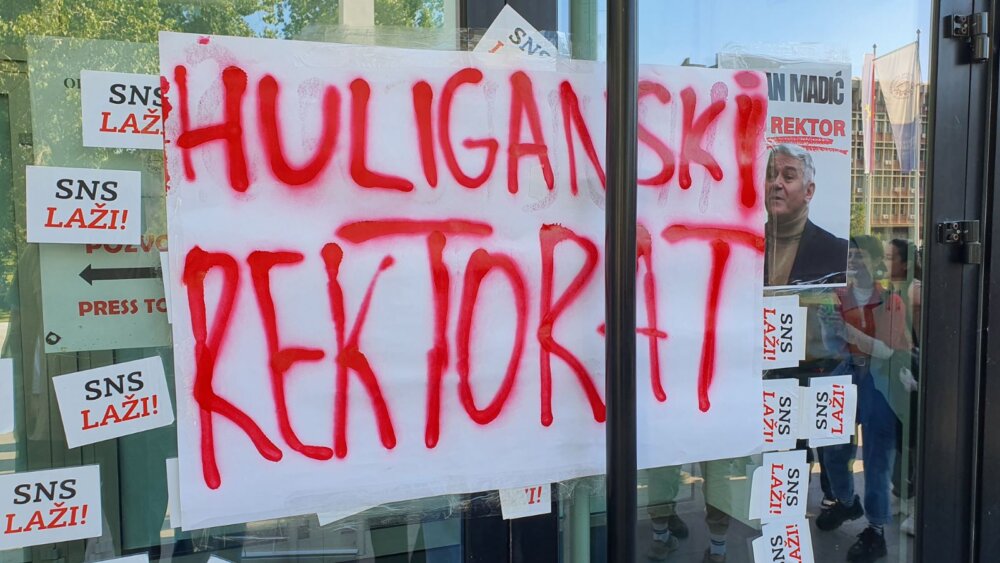 HULIGANSKI
REKTORAT
SNS
SNS
LAŽ
SNS
LAŽI!
POZVO
PRESS TO
SNS
LAŽI!
SNS
LAŽI!
AN MADIĆ
REKTOR
SNS
LAŽI!
SNS
LAŽI!
SNS
LAŽI!
SNS
LAŽI!
SNS
LAŽI!
I!